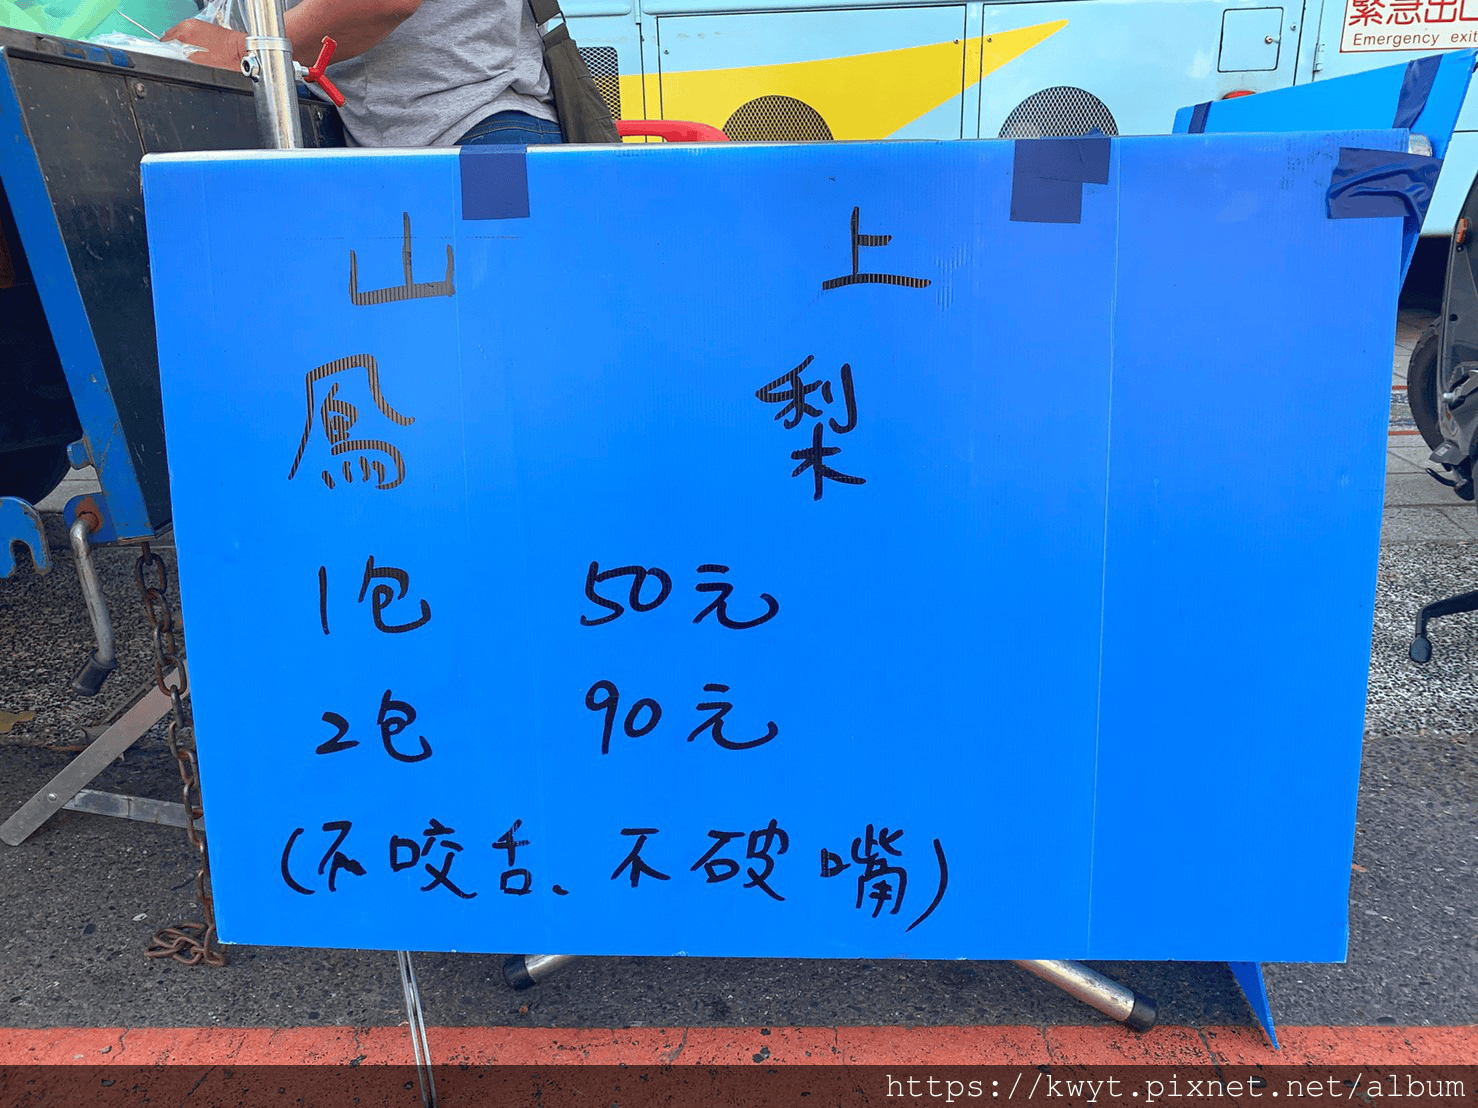 緊急出口
Emergency exit
山上
鳳梨
1包 50元
2包 90元
(不咬舌、不破嘴)
https://kwyt.pixnet.net/album